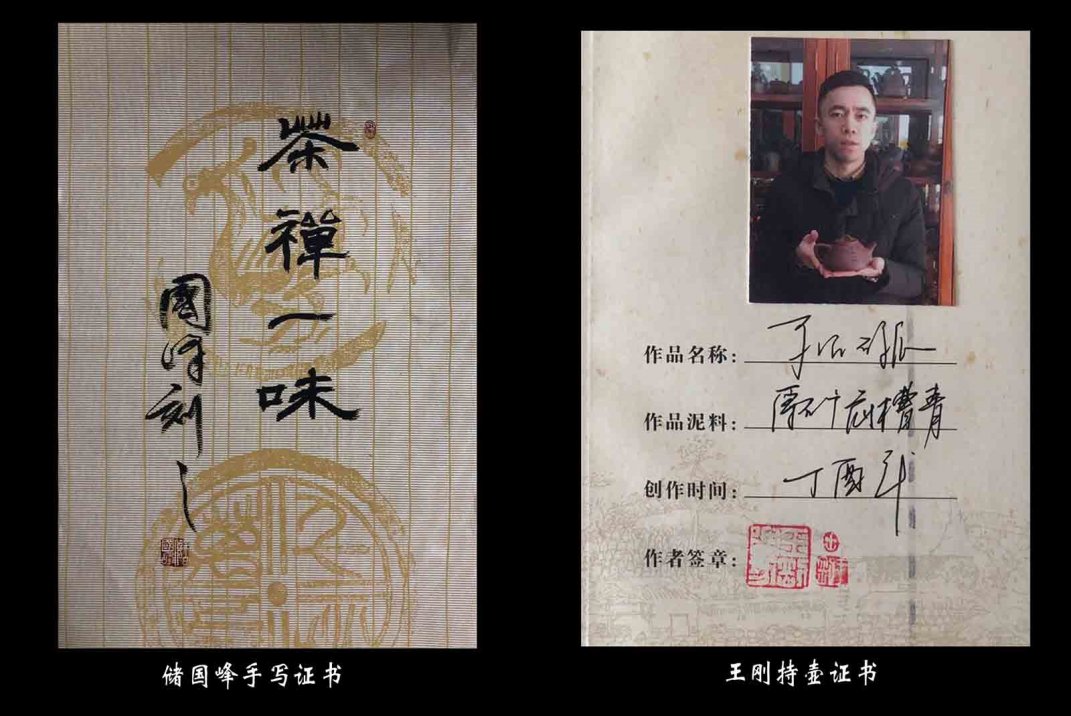 茶禪一味
國峰刻之
储国峰手写证书
作品名称:子冶石瓢
作品泥料:原矿底槽青
创作时间:丁酉年
作者签章:
王刚持壶证书